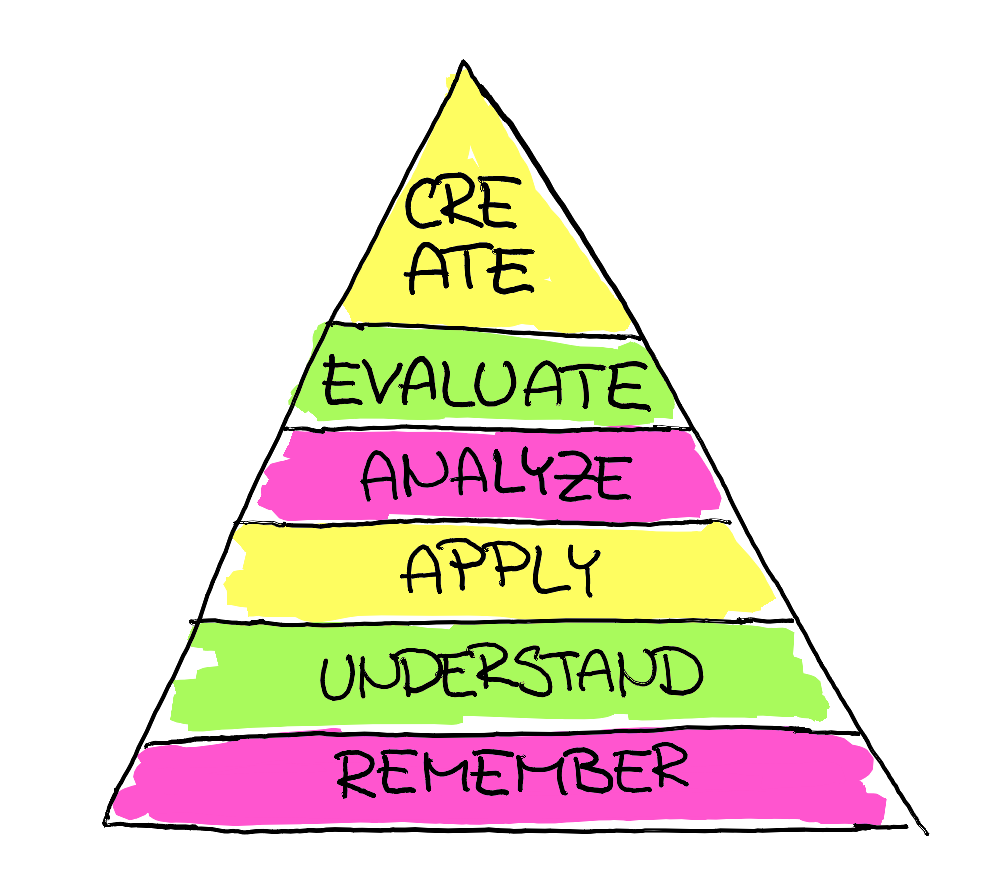 CRE
ATE
EVALUATE
ANALYZE
APPLY
UNDERSTAND
REMEMBER